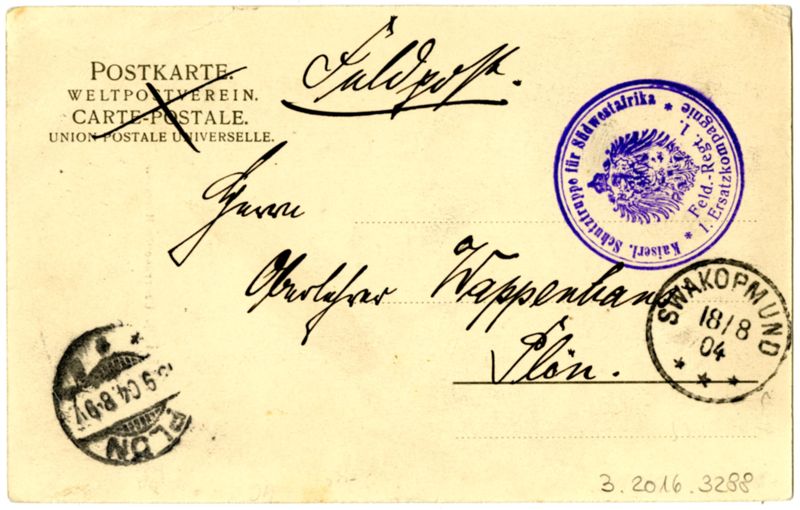 POSTKARTE.
WELTPOSTVEREIN.
CARTE-POSTALE.
UNION POSTALE UNIVERSELLE.
Feldpost.
Kaiserl. Schutztruppe für Südwestafrika
* Feld.-Regt. 1. *
1. Ersatzkompagnie
Herrn
Oberlehrer Wappenhans
Plön.
SWAKOPMUND
18/8
04
* * *
9.04.8-9V
PLÖN
3.2016.3288